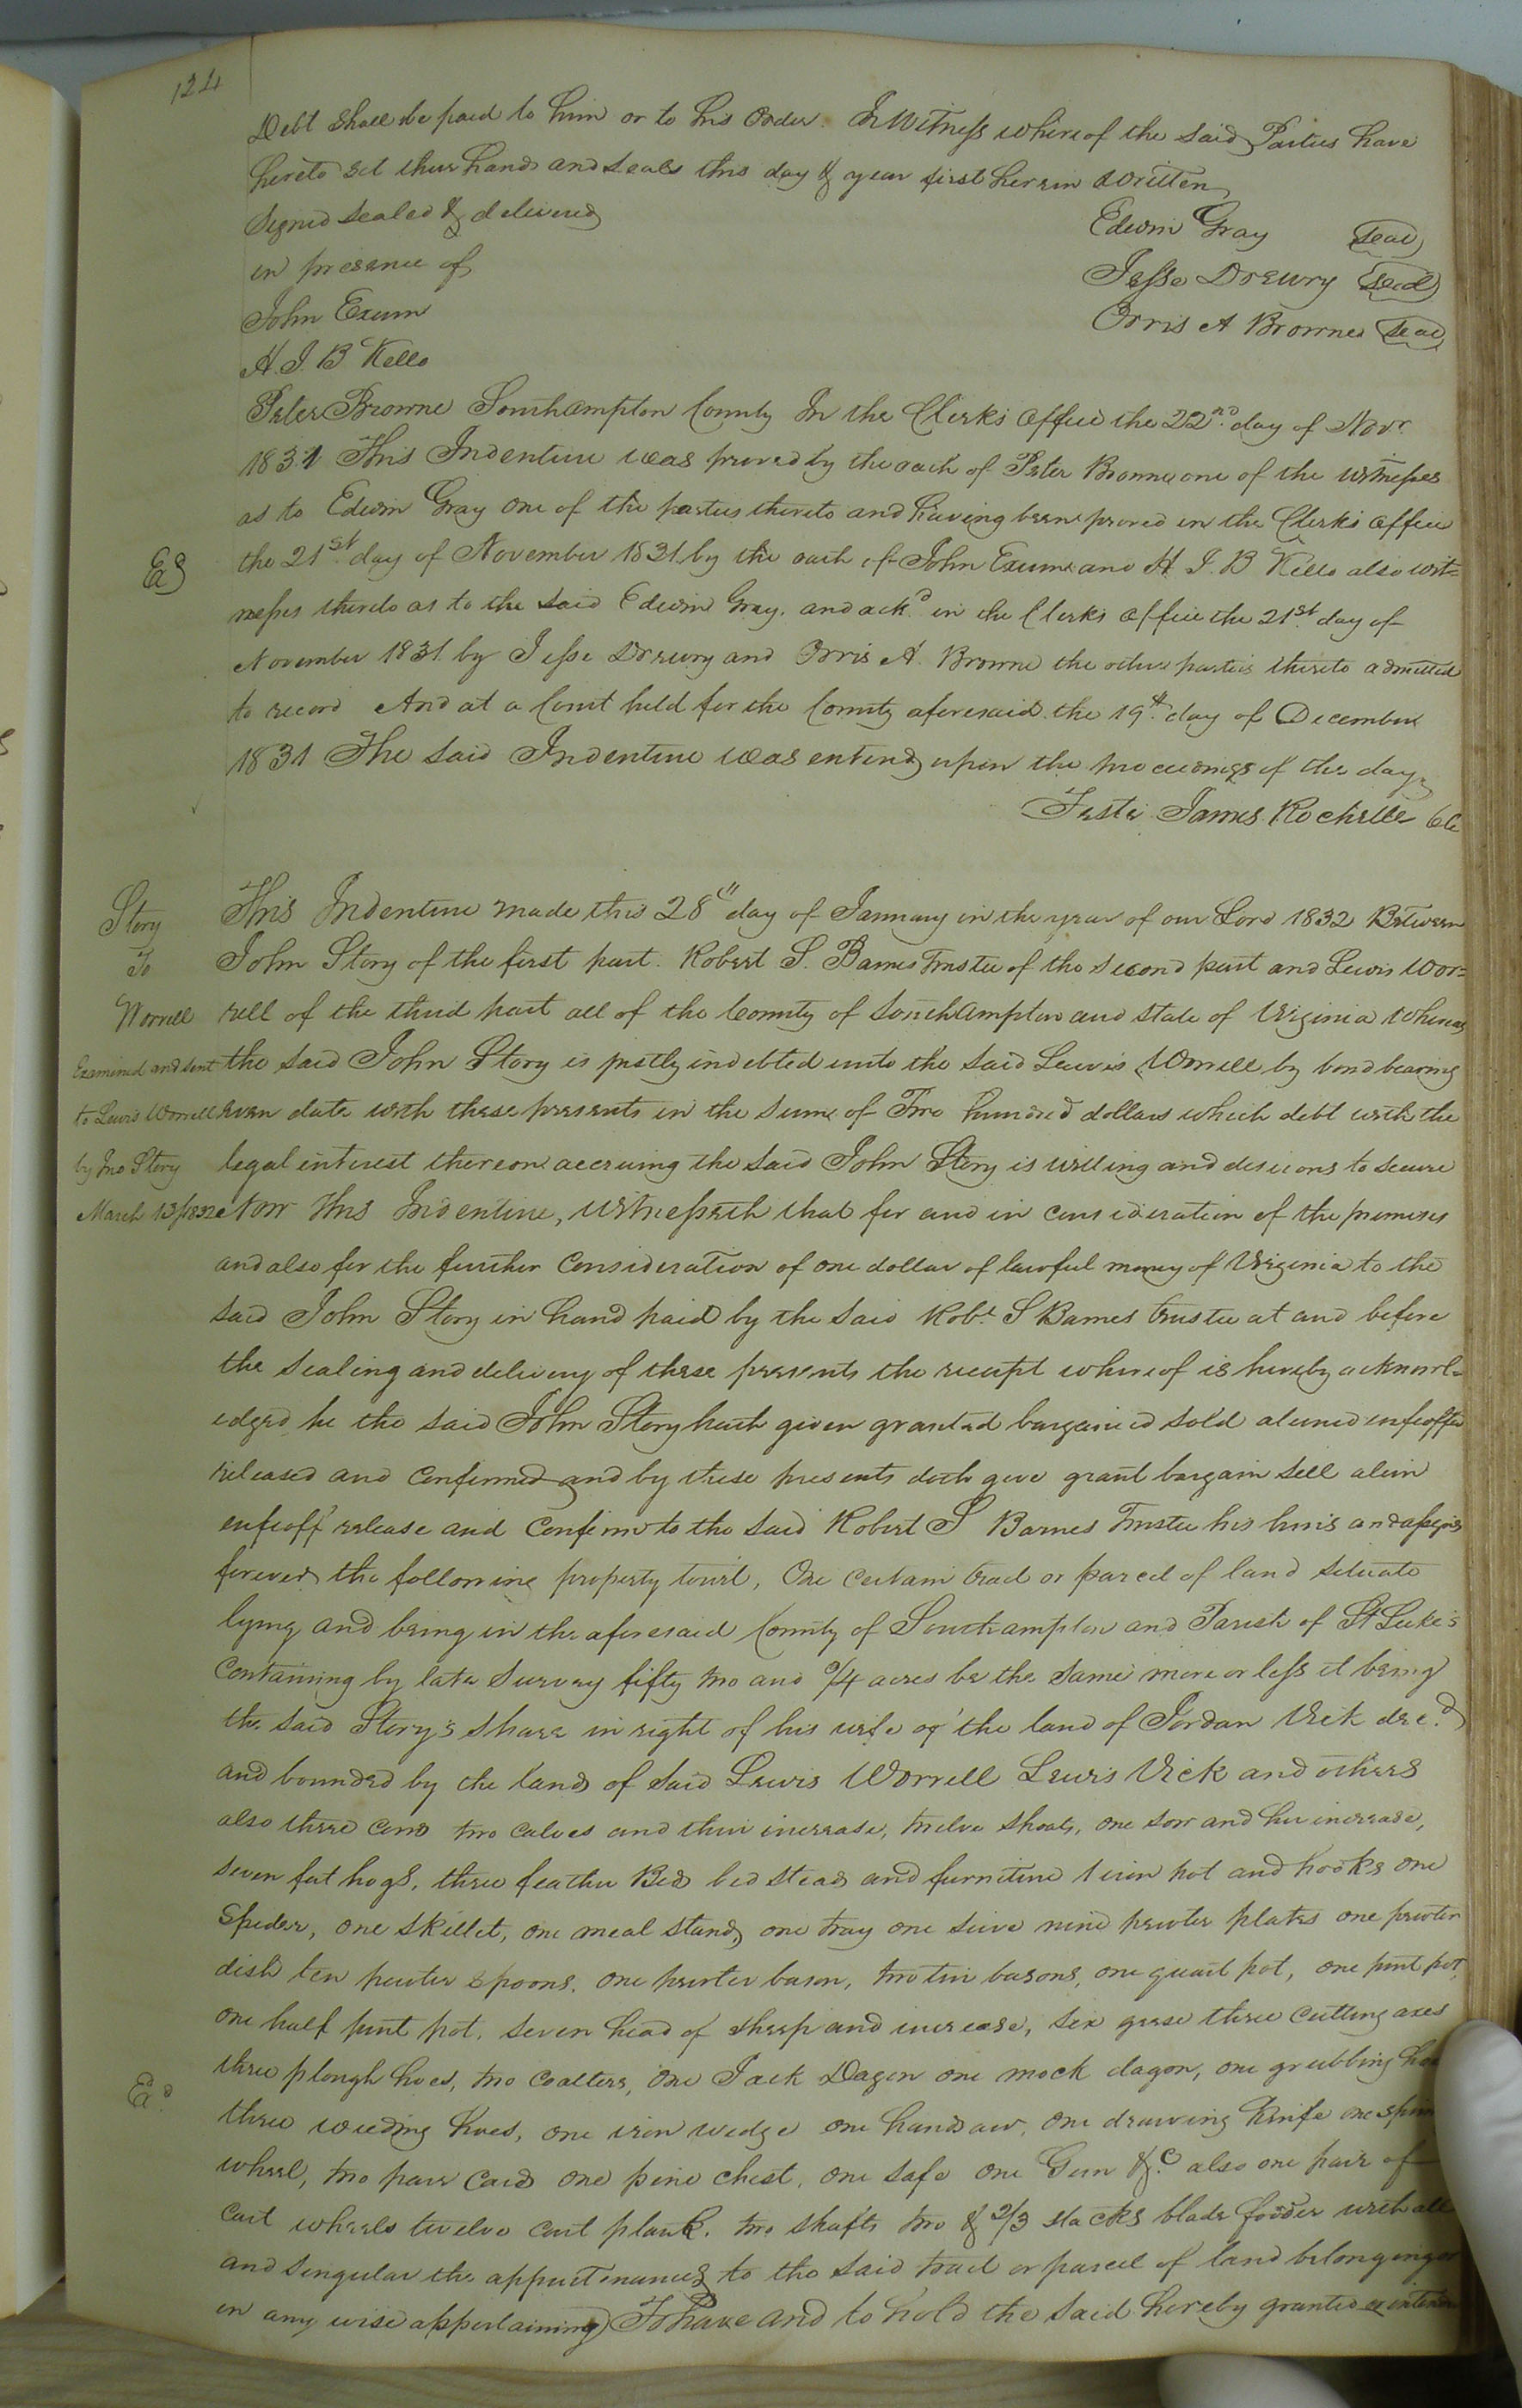 124
Debt shall be paid to him or to his order. In Witness whereof the said Parties have
hereto set their hands and seals this day & year first herein written
Signed sealed & delivered
Edwin Gray seal
in presence of
Jesse Drewry seal
John Exum
Orris A Browne seal
H. J. B Kello
Peter Browne Southampton County In the Clerk's Office the 22nd. day of Novr.
1831 This Indenture was proved by the oath of Peter Browne one of the witnesses
as to Edwin Gray one of the parties thereto and having been proved in the Clerk's office
Ed
the 21st. day of November 1831 by the oath of John Exum and H. J. B Kello also wit=
nesses thereto as to the said Edwin Gray. and ackd. in the Clerks office the 21st. day of
November 1831 by Jesse Drewry and Orris A. Browne the other parties thereto admitted
to record And at a Court held for the County aforesaid the 19th. day of December
1831 The said Indenture was entered upon the proceedings of the day
Teste James Rochelle CC
Story
To
Worrell
Examined and sent
to Lewis Worrell
by Jno Story
March 13/1832
This Indenture made this 28th day of January in the year of our Lord 1832 Between
John Story of the first part. Robert S. Barnes Trustee of the second part and Lewis Wor=
rell of the third part all of the County of Southampton and State of Virginia Whereas
the said John Story is justly indebted unto the said Lewis Worrell by bond bearing
even date with these presents in the sum of Two hundred dollars which debt with the
legal interest thereon accruing the said John Story is willing and desirous to secure
Now this Indenture, witnesseth that for and in consideration of the premises
and also for the further consideration of one dollar of lawful money of Virginia to the
said John Story in hand paid by the said Robt. S Barnes trustee at and before
the sealing and delivery of these presents the receipt whereof is hereby acknowl=
edged he the said John Story hath given granted bargained sold aliened enfeoffed
released and confirmed and by these presents doth give grant bargain sell alien
enfeoff release and confirm to the said Robert S Barnes Trustee his heirs and assigns
forever the following property towit, One certain tract or parcel of land situate
lying and being in the aforesaid County of Southampton and Parish of St Luke's
Containing by late Survey fifty two and 3/4 acres be the same more or less it being
the said Story's share in right of his wife of the land of Jordan Vick decd.
and bounded by the lands of said Lewis Worrell Lewis Vick and others
also three cows two calves and their increase, twelve shoats, one sow and her increase,
seven fat hogs, three feather Beds bed steads and furniture 1 iron pot and hooks one
Spider, one skillet, one meal stand, one tray one sieve nine pewter plates one pewter
dish ten pewter spoons. one pewter bason, two tin basons, one quart pot, one pint pot,
one half pint pot. seven head of sheep and increase, six geese three cutting axes
three plough hoes, two coalters, one Jack Dagon one mock dagon, one grubbing hoe
Ed.
three weeding hoes, one iron wedge one handsaw, one drawing knife one
wheel, two pair cards one pine chest. one safe one Gun &c. also one pair of
cart wheels twelve cart plank. two shafts two & 2/3 stacks blade fodder with all
and singular the appurtenances to the said tract or parcel of land belonging or
in any wise appertaining To have and to hold the said hereby granted or